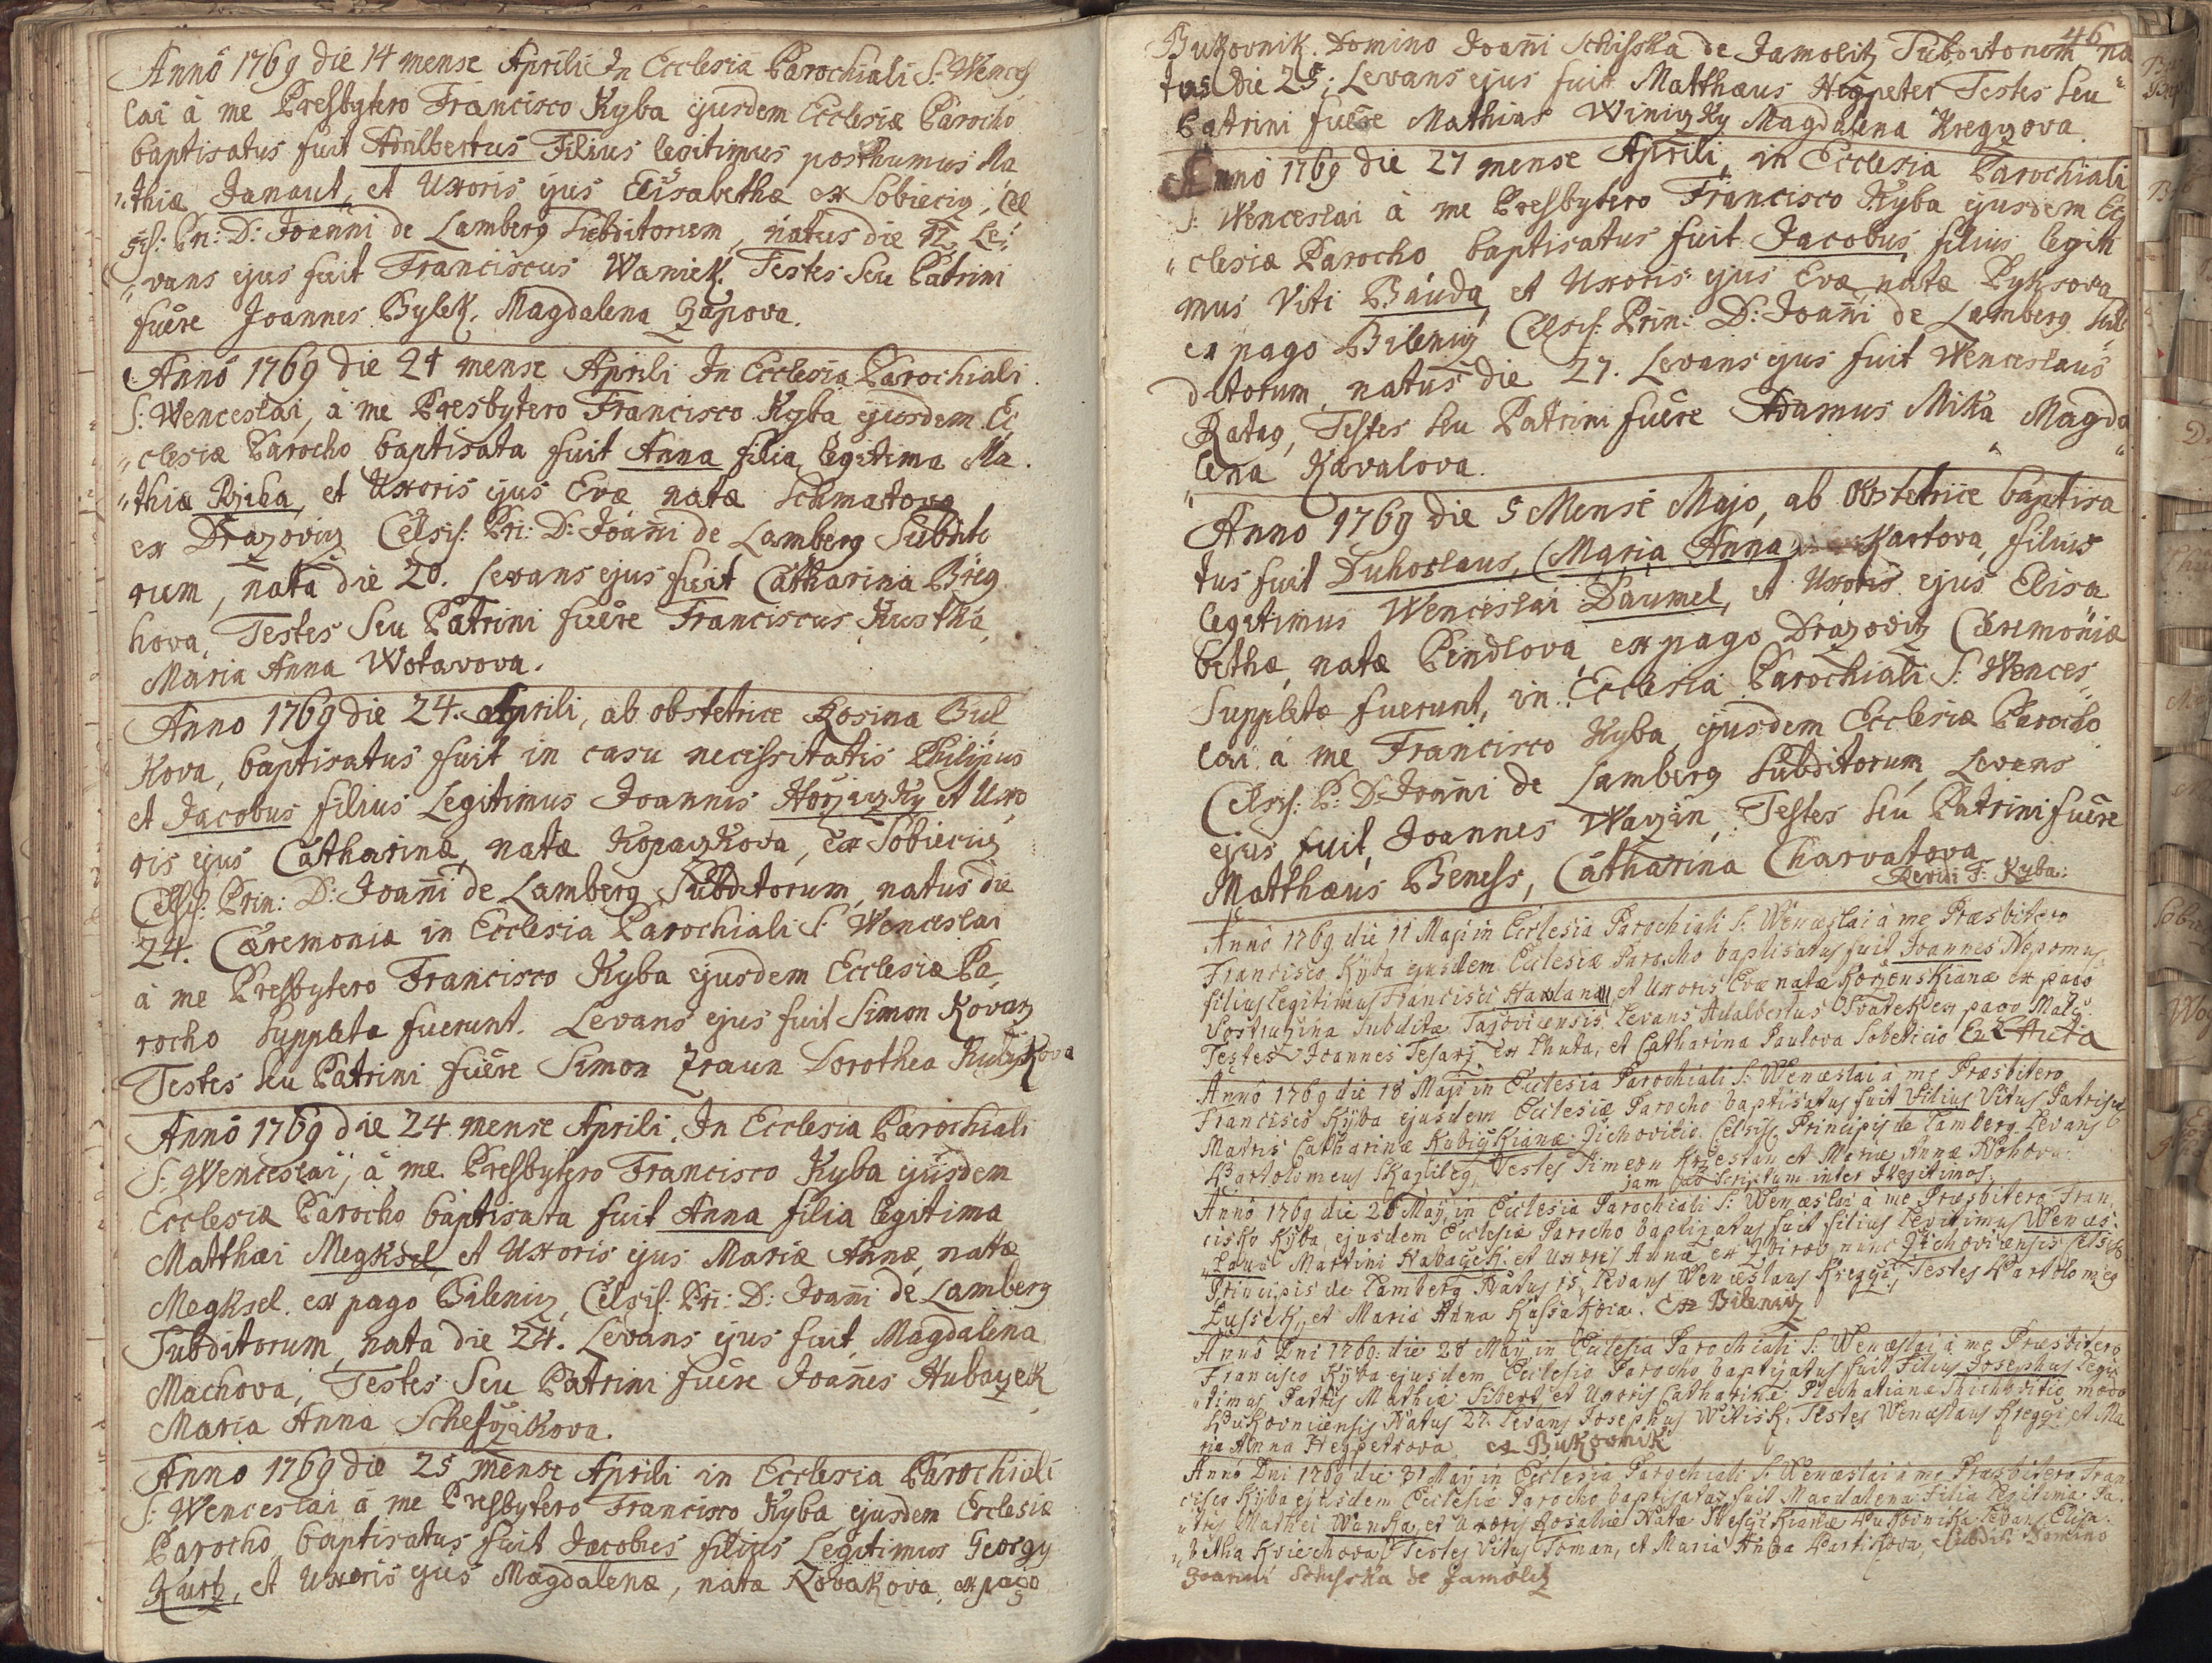 Anno 1769 die 14 mense Aprili In Ecclesia Parochiali S: Wences
lai à me Presbytero Francisco Kyba ejusdem Ecclesiæ Parocho
baptisatus fuit Adalbertus Filius legitimus posthumus Ma
thiæ Janaut, et Uxoris ejus Elisabethæ ex Sobiecig, Cel
sis: Pri: D: Joanni de Lamberg Subditorum, natus die 12 Le
vans ejus fuit Franciscus Waniek. Testes Seu Patrini
fuêre Joannes Bylek, Magdalena Zapova.
Anno 1769 die 21 mense Aprili In Ecclesia Parochiali
S: Wenceslai, à me Presbytero Francisco Kyba ejusdem Ec
clesiæ Parocho baptisata fuit Anna filia legitima Ma
thiæ Rziha, et Uxoris ejus Evæ natæ Schmatova
ex Drazoviz Celsis: Pri: D: Joanni de Lamberg Subdito
rum, nata die 20. Levans ejus fuit Catharina Breg
hova, Testes Seu Patrini fuêre Franciscus Kustka,
Maria Anna Wotavova.
Anno 1769 die 24. Aprili, ab obstetrice Rosina Bul
kova, baptisatus fuit in casu necessitatis Philipus
et Jacobus filius Legitimus Joannis Horzizky et Uxo
ris ejus Catharinæ, natæ Kopaczkova, ex Sobieciz
Celsis: Prin: D: Joanni de Lamberg Subditorum, natus die
24. Cæremoniæ in Ecclesia Parochiali S: Wenceslai
à me Presbytero Francisco Kyba ejusdem Ecclesiæ Pa
rocho Suppletæ fuerunt. Levans ejus fuit Simon Kovarz
Testes seu Patrini fuêre Simon Zraun Dorothea Kubizkova
Anno 1769 die 24 mense Aprili, In Ecclesia Parochiali
S: Wenceslai, à me Presbytero Francisco Kyba ejusdem
Ecclesiæ Parocho baptisata fuit Anna filia legitima
Matthæi Megksel, et Uxoris ejus Mariæ Annæ, natæ
Megksel ex pago Bileniz, Celsis: Pri: D: Joanni de Lamberg
Subditorum, nata die 24. Levans ejus fuit, Magdalena
Machova, Testes Seu Patrini fuêre Joannes Hubayek
Maria Anna Schefzikova.
Anno 1769 die 25 mense Aprili in Ecclesia Parochiali
S: Wenceslai à me Presbytero Francisco Kyba ejusdem Ecclesiæ
Parocho baptisatus fuit Jacobus filius Legitimus Georgy
Kurtz, et Uxoris ejus Magdalenæ, nata Kovakova, ex pago
46
Bukovnik. Domino Joanni Schisska de Jamolitz Subditorum na
tus die 25: Levans ejus fuit Matthæus Hegpeter Testes seu
Patrini fuêre Mathias Winizky Magdalena Kregzova
Anno 1769 die 27 mense Aprili, in Ecclesia Parochiali
S: Wenceslai à me Presbytero Francisco Kyba ejusdem Ec
clesiæ Parocho baptisatus fuit Jacobus, filius legiti
mus Viti Bauda, et Uxoris ejus Evæ, natæ Pyksova
ex pago Bileniz Celsis: Prin: D: Joanni de Lamberg Sub
ditorum, natus die 27. Levans ejus fuit Wenceslaus
Ratag, Testes seu Patrini fuêre Adamus Mika Magda
lena Kavalova.
Anno 1769 die 5 Mense Majo, ab Obstetrice baptisa
tus fuit Duhoslaus, (Maria Anna) Kartova, filius
legitimus Wenceslai Daumel, et Uxoris ejus Elisa
bethæ, natæ Pindlova ex pago Drazoviz Cæremoniæ
Suppletæ fuerunt, in Ecclesia Parochiali S: Wences
lai à me Francisco Kyba ejusdem Ecclesiæ Parocho
Celsis: P: D: Joanni de Lamberg Subditorum, Levans
ejus fuit, Joannes Wazin, Testes seu Patrini fuêre
Matthæus Beness, Catharina Charvatova
F: Kyba.
Anno 1769 die 11 Maji in Ecclesia Parochiali S: Wenceslai à me Præsbitero
Francisco Kyba ejusdem Ecclesiæ Parocho baptisatus fuit Joannes Nepomuc
filius legitimus Francisci et Uxoris Evæ natæ Korzenskianæ ex pago
Levans Adalbertus Svatek ex pago
Testes Joannes Tesarz ex Lhuta, et Catharina Paulova Sobeticio Ex Lhuta
Anno 1769 die 18 Maji in Ecclesia Parochiali S: Wenceslai à me Præsbitero
Francisco Kyba ejusdem Ecclesiæ Parocho baptisatus fuit Filius Vitus Patris
Matris Catharinæ Kubiczkianæ Zichovitio. Celsis: Principis de Lamberg Levans
Bartolomeus Skapileg, Testes Simeon et Mariæ Annæ
jam Scriptum inter Illegitimos.
Anno 1769 die 26 May in Ecclesia Parochiali S: Wenceslai à me Præsbitero Fran
cisko Kyba, ejusdem Ecclesiæ Parocho baptizatus fuit filius Legitimus Wences:
laus Martini Habayek: et Uxoris Annæ ex nunc Zichoviensis Celsis:
Principis de Lamberg Natus 25, Levans Wenceslaus Kregzi, Testes Bartolomeg
Lussek, et Maria Anna Kassakova. Ex Bileniz
Anno Dni 1769: die 28 May in Ecclesia Parochiali S: Wenceslai à me Præsbitero
Francisco Kyba ejusdem Ecclesiæ Parocho baptizatus fuit Filius Josephus Legi
timus Patris Mathiæ Sibert et Uxoris Catharinæ modo
Bukovniensis Natus 27. Levans Josephus Witisk. Testes Wenceslaus Kregzi et Ma
ria Anna Hegpetrova ex Bukovnik
Anno Dni 1769 die 31 May in Ecclesia Parochiali S: Wenceslai à me Præsbitero Fran
cisco Kyba ejusdem Ecclesiæ Parocho baptisata fuit Magdalena Filia Legitima Pa
tris Mathei Wanka, et Uxoris Rosaliæ Natæ Levans Elisa
betha Testes Vitus Toman, et Maria Anna Subditi Domino
Joanni Schisska de Jamolitz